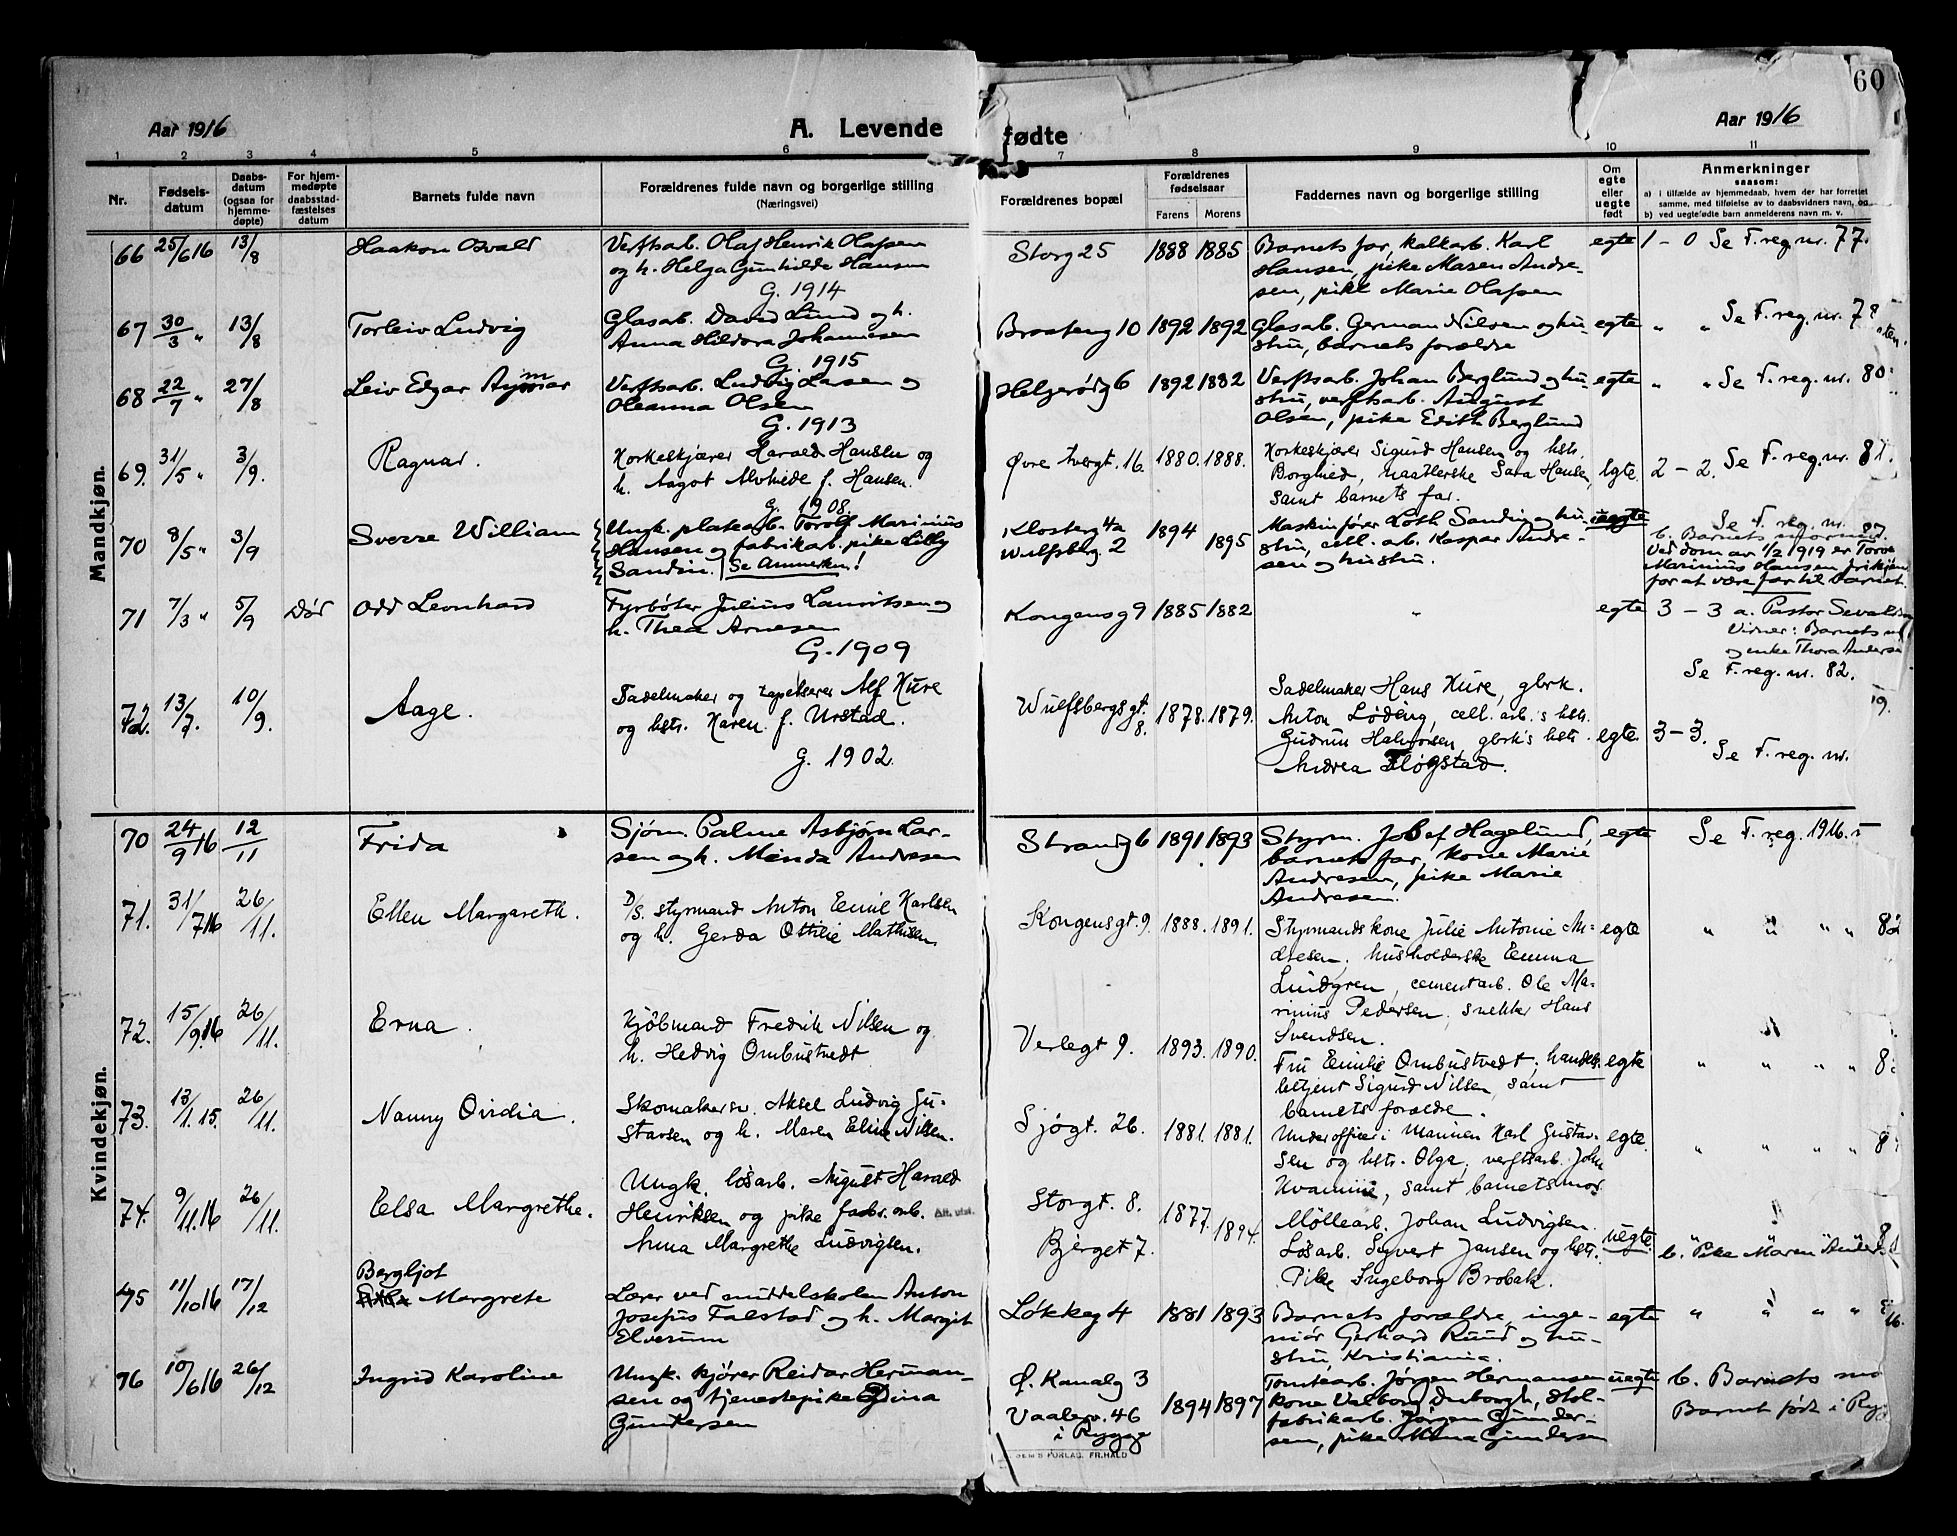 60
Aar 1916
A. Levende
fødte
Aar 1916
1 2 3 4 5 6 7 8 9 10 11
Nr.
Fødsels-
datum
Daabs-
datum
(ogsaa for
hjemme-
døpte)
For hjem-
medøpte
daabsstad-
fæstelses
datum
Barnets fulde navn
Forældrenes fulde navn og borgerlige stilling
(Næringsvei)
Forældrenes bopæl
Forældrenes
fødselsaar
Farens Morens
Faddernes navn og borgerlige stilling
Om
egte
eller
uegte
født
Anmerkninger
saasom:
a) i tilfælde av hjemmedaab, hvem der har forrettet
samme, med tilføielse av to daabsvidners navn, og
b) ved uegtefødte barn anmelderens navn m. v.
Mandkjøn.
66 25/6 16 13/8 Haakon Osvald
Verftsarb. Olaf Henrik Olafsen
og h. Helga Gunhilde Hansen
G. 1914
Storg 25 1888 1885
Barnets far, kalkarb. Karl
Hansen, pike Maren Andre-
sen, pike Marie Olafsen
egte 1 - 0 Se F. reg. nr. 77.
67 30/3 " 13/8 Torleiv Ludvig
Glasarb. David Lund og h.
Anna Hildora Johannesen
G. 1915
10 1892 1892
Glasarb. German Nilsen og hu-
stru, barnets forældre
egte " " Se F. reg. nr. 78
68 22/7 " 27/8 Leiv Edgar
Verftsarb. Ludvig Larsen og
Oleanna Olsen
G. 1913
Helgerødg 6 1892 1882
Verftsarb. Johan Berglund og hu-
stru, verftsarb. August
Olsen, pike Edith Berglund
egte " " Se F. reg. nr. 80
69. 31/5 " 3/9. Ragnar.
Korkeskjærer Harald Hansen og
h. Aagot Alvhilde f. Hansen.
G. 1908.
Øvre tvergt. 16. 1880. 1888.
Korkeskjærer Sigurd Hansen og hstr.
Borghild, Sara Hansen,
samt barnets far.
egte. 2 - 2. Se F. reg. nr. 81.
70 8/5 " 3/9 Sverre William
Ungk. platearb. Torolf Marinius
Hansen og fabrikarb. pike Lilly
Sandin. Se Anmerkn!
Klosterg 4a
Wulfsberg. 2
1894 1895
Maskinfører Loth Sandin og hu-
stru, cell. arb. Kaspar Andre-
sen og hustru.
uegte Se F. reg. nr. 87.
b. Barnets mormor.
Ved dom av 1/2 1919 er Torolf
Marinius Hansen frikjendt
for at være far til barnet.
71 7/3 " 5/9 Død Odd Leonhard
Fyrbøter Julius Lauritsen og
h. Thea Arnesen
G. 1909
Kongensg 9 1885 1882 " egte
3 - 3 a. Pastor
Vidner: Barnets
og enke Thora
Se F. reg. nr. 82.
72. 13/7. 10/9. Aage.
Sadelmaker og tapetserer Alf Kure
og hstr. Karen f. Urstad.
G. 1902.
Wulfsbergsgt. 8. 1878. 1879.
Sadelmaker Hans Kure, gbrk.
Anton Løding, cell. arb.'s hstr.
Gudrun Halvorsen, gbrk's hstr.
Andrea Fløgstad.
egte. 3 - 3. Se F. reg. nr. 19.
Kvindekjøn.
70 24/9 16 12/11 Frida
Sjøm. Palme Asbjørn Lar-
sen og h. Minda Andresen
Strandg 6 1891 1893
Styrm. Josef Hagelund,
barnets far, kone Marie
Andresen, pike Marie
Andresen.
egte Se F. reg. 1916.
71. 31/7 16 26/11. Ellen Margareth.
D/S. styrmand Anton Emil Karlsen
og h. Gerda Ottilie Mathisen
Kongensgt. 9. 1888. 1891.
Styrmandskone Julie Antonie An-
dresen, husholderske Emma
Lundgren, cementarb. Ole Ma-
rinius Pedersen, snekker Hans
Svendsen.
egte " " " " 82
72. 15/9 16 26/11. Erna.
Kjøbmand Fredrik Nilsen og
h. Hedvig Ombustvedt
Verlegt 9. 1893. 1890.
Fru Emilie Ombustvedt, handels-
betjent Sigurd Nilsen, samt
barnets forældre.
egte " " " " 8
73. 13/1. 15. 26/11. Nanny Ovidia.
Skomakersv. Aksel Ludvig Gu-
stavsen og h. Maren Eline Nilsen.
Sjøgt. 26. 1881. 1881.
Underofficer i marinen Karl Gustav-
sen og hstr. Olga, verftsarb. John
samt barnets mor
egte. " " " " 8
74. 9/11. 16 26/11. Elsa Margrethe.
Ungk. løsarb. August Harald
Henriksen og pike fabr. arb.
Anna Margrethe Ludvigsen.
Storgt. 8.
Bjerget 7.
1877. 1894.
Møllearb. Johan Ludvigsen.
Løsarb. Sigvert Jansen og hstr.
Pike Ingeborg Brobak.
uegte. " " " " 8
b. Pike Maren
75 11/10 16 17/12 Bergljot
Margrete
Lærer ved middelskolen Anton
Josefus Falstad og h. Margit
Elverum
Løkkeg 4 1881 1893
Barnets forældre, inge-
niør Gerhard Ruud og hu-
stru, Kristiania.
egte " " " "
76 10/6 16 26/12 Ingrid Karoline
Ungk. kjører Reidar Herman-
sen og tjenestepike Edina
Gundersen
Ø. Kanalg 3
Vaalerv. 46
i Rygge
1894 1897
Tomtearb. Jørgen Hermansen
kone Valborg Duborgh, stol-
fabrikarb. Jørgen Gunder-
sen, pike Anna Gundersen
uegte b. Barnets mo
Barnet født i Ryg
SEM'S FORLAG. FR.HALD